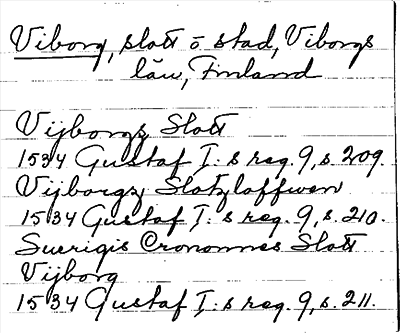 Viborg, slott ö stad, Viborgs
län, Finland
Vijborgz Slott
1534 Gustaf I:s reg. 9, s. 209.
Vijborgz Slotzloffwen
1534 Gustaf I:s reg. 9, s. 210.
Suerigis Cronomnes Slott
Vijborg
1534 Gustaf I:s reg. 9, s. 211.